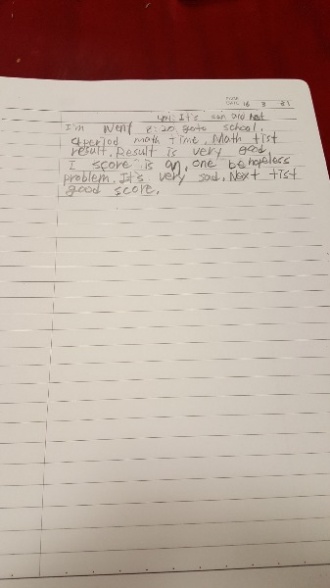 DATE 16 3 21
It's can and not
I'm went 8:20 go to school.
4 period math time. Math tist
result. Result is very good
I score is 90, one be hopeless
problem. It's very sad. Next tist
good score.